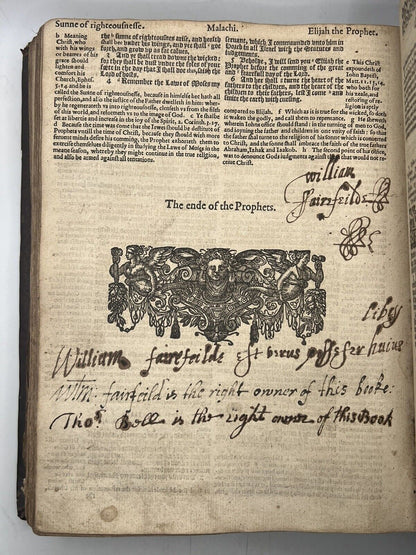 Sunne of righteousnesse. Malachi. Elijah the Prophet.
b Meaning
Christ, who
with his wings
or beames of
his grace should
lighten and
comfort his
Church, Ephes.
5.14 and he is
the sunne of righteousnes arise, and health
shall be vnder his wings, and ye shall goe
forth, and grow vp as fat calues.
3 And ye shall tread downe the wicked: for
they shall be dust vnder the soles of your
feete in the day that I shall doe this, saith the
Lord of hostes.
4 Remember the Lawe of Moses my
called the Sunne of righteousnesse, because in himselfe he hath all
perfection, and also the iustice of the Father dwelleth in him: where-
by he regenerateth vs into righteousnesse, clenseth vs from the filth
of this world, and reformeth vs to the image of God. c Ye shalbe
set at libertie and increase in the ioy of the Spirit, 2. Corinth. 3.17.
d Because the time was come that the Iewes should be destitute of
Prophets vntill the time of Christ, because they should with more
feruent minds desire his comming, the Prophet exhorteth them to
exercise themselues diligently in studying the Lawe of Moses in the
meane season, whereby they might continue in the true religion,
and also be armed against all tentations.
seruant, which I commanded vnto him in
Horeb for all Israel with the statutes and
iudgements.
5 Behold, I will send you Eliiah the
Prophet before the comming of the great
and fearefull day of the Lord.
6 And he shall turne the heart of the
fathers to the children, and the heart of the
children to their fathers, lest I come and
smite the earth with cursing.
e This Christ
expoundeth of
Iohn Baptist,
Matt. 11.13,14.
who both for
his zeale, and
restoring of
religion is aptly
compared to Eliiah. f Which as it is true for the wicked, so doeth
it waken the godly, and call them to repentance. g He sheweth
wherein Iohns office should stand: in the turning of men to God,
and ioyning the father and children in one vnitie of faith: so that
the father shall turne to the religion of his sonne which is conuerted
to Christ, and the sonne shall imbrace the faith of the true fathers
Abraham, Izhak and Iaakob. h The second point of his office,
was to denounce Gods iudgements against them that would not re-
ceiue Christ.
william
ffairfeild
The ende of the Prophets.
libey
William fairefeilde est verus possesser huius
Wllm: fairfeild is the right owner of this booke:
Tho: Bell is the right owner of this Book